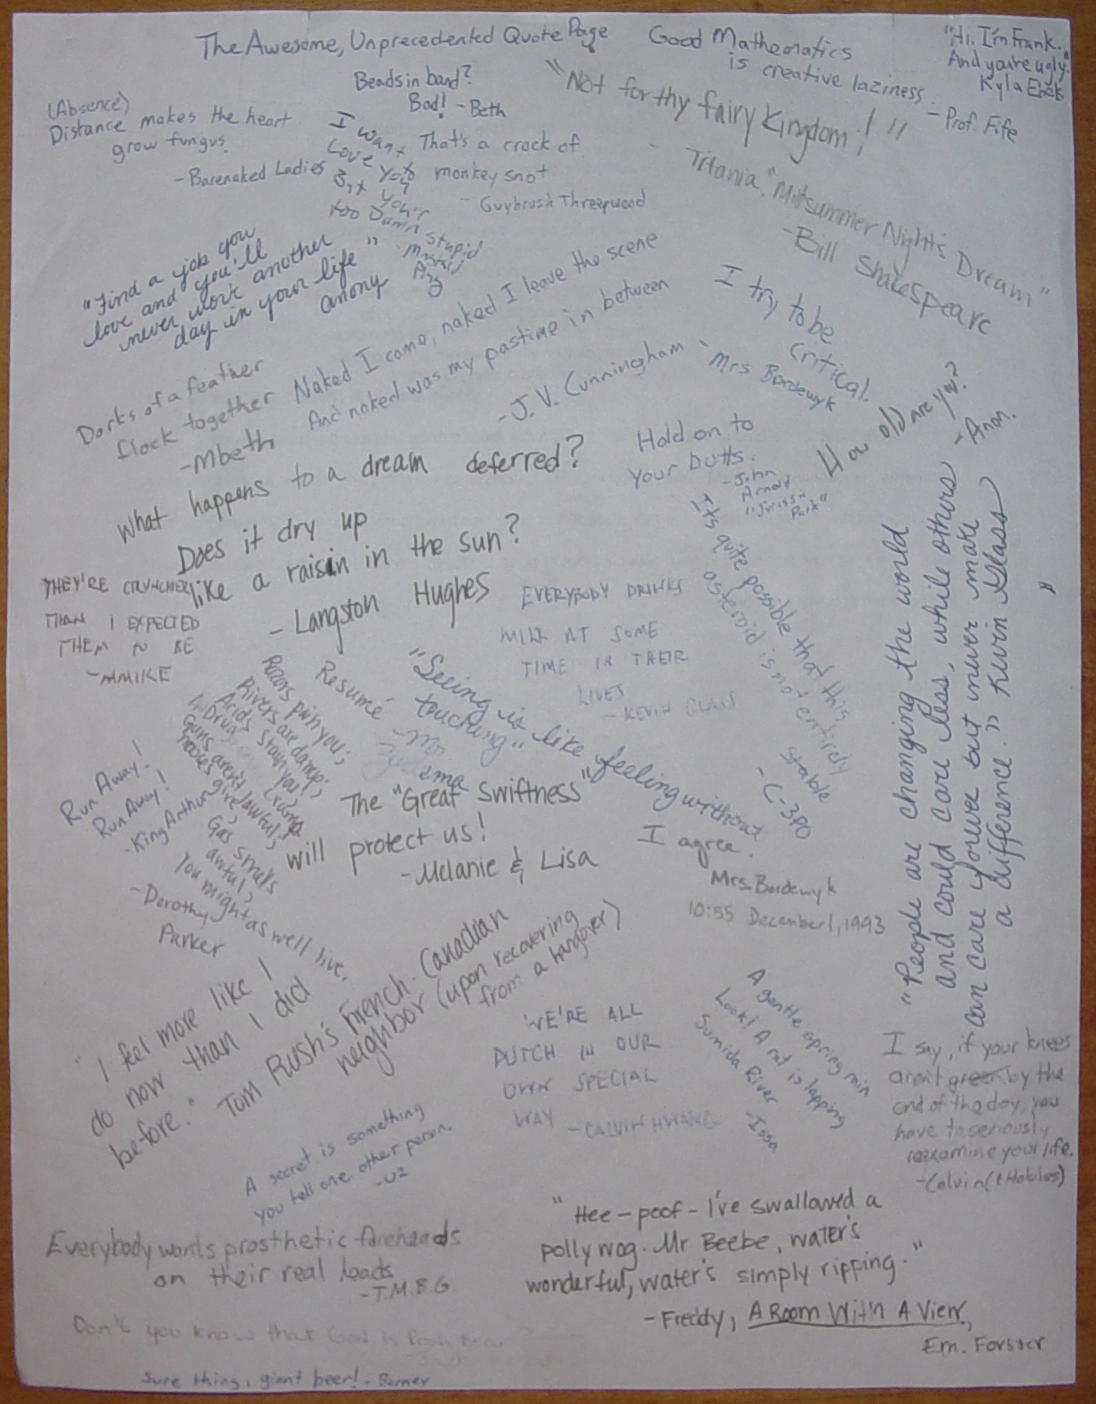 The Awesome, Unprecedented Quote Page
Good Mathematics
is creative laziness
- Prof. Fife
"Hi, I'm Frank.
And you're ugly.
Kyla
(Absence)
Distance makes the heart
grow fungus.
- Barenaked Ladies
Beads in band?
Bad! - Beth
I want
Love you
But your
too Damn stupid
"Not for thy fairy Kingdom!"
- Titania, "Mitsummer Nights Dream"
- Bill Shakespeare
That's a crock of
monkey snot
- Guybrush Threepwood
"Find a job you
love and you'll
never work another
day in your life"
anony
Dorks of a feather
flock together
- Mbeth
Naked I came, naked I leave the scene
And naked was my pastime in between
- J.V. Cunningham
I try to be
critical.
Mrs Bordewyk
How old are you?
- Anon.
What happens to a dream deferred?
Does it dry up
like a raisin in the sun?
- Langston Hughes
Hold on to
your butts.
- John
Arnold
"Jurassic
Park"
It's quite possible that this
asteroid is not entirely
stable
- C-3PO
THEY'RE CRUNCHIER
THAN I EXPECTED
THEM TO BE
- MMIKE
EVERYBODY DRINKS
MILK AT SOME
TIME IN THEIR
LIVES
- KEVIN GLASS
"People are changing the world
and could care less, while others
can care forever but never make
a difference." Kevin Glass
Resumé
Razors pain you;
Rivers are damp;
Acids stain you;
Drugs cause cramp
Guns aren't lawful;
Nooses give;
Gas smells
awful;
You might as well live.
- Dorothy
Parker
"Seeing is like feeling without
touching"
Run Away!
Run Away!
- King Arthur
The "Great Swiftness"
will protect us!
- Melanie & Lisa
I agree.
Mrs. Bordewyk
10:55 December 1, 1993
"I feel more like I
do now than I did
before."
Tom Rush's French-Canadian
neighbor (upon recovering
from a hangover)
WE'RE ALL
DUTCH IN OUR
OWN SPECIAL
WAY - CALVIN HWANG
A gentle spring rain
Look! A rat is lapping
Sumida River
- Issa
I say, if your knees
aren't green by the
end of the day, you
have to seriously
reexamine your life.
- Calvin (& Hobbes)
A secret is something
you tell one other person.
- U2
Everybody wants prosthetic foreheads
on their real heads
- T.M.B.G.
"Hee-poof - I've swallowed a
pollywog. Mr Beebe, water's
wonderful, water's simply ripping."
- Freddy, A Room With A View,
Em. Forster
Don't you know that God is
Sure thing, giant beer! - Barney